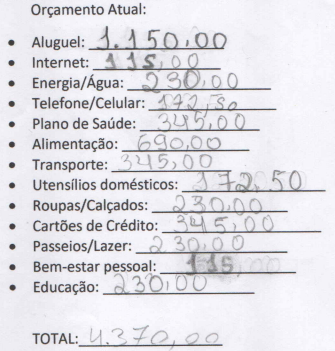 Orçamento Atual:
• Aluguel: 1.150,00
• Internet: 115,00
• Energia/Água: 230,00
• Telefone/Celular: 172,50
• Plano de Saúde: 345,00
• Alimentação: 690,00
• Transporte: 345,00
• Utensílios domésticos: 172,50
• Roupas/Calçados: 230,00
• Cartões de Crédito: 345,00
• Passeios/Lazer: 230,00
• Bem-estar pessoal: 115,00
• Educação: 230,00
TOTAL: 4.370,00